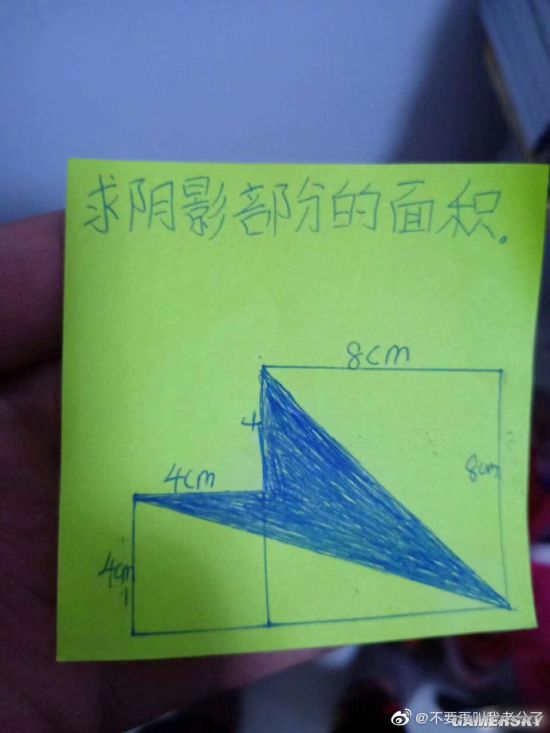 求阴影部分的面积。
8cm
4
4cm
8cm
4cm
@不要再叫我老公了
GAMERSKY